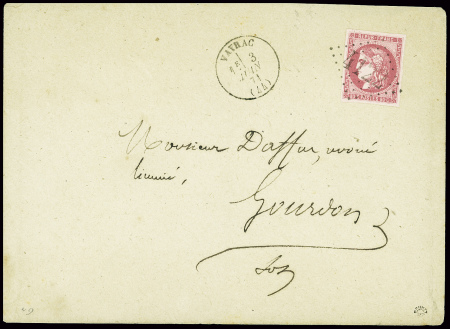 VAYRAC
1
3
JUIN
71
(44)
REPUB. FRANC.
80 POSTES 80
Monsieur Daffas, avoué
licencié,
Gourdon
Lot